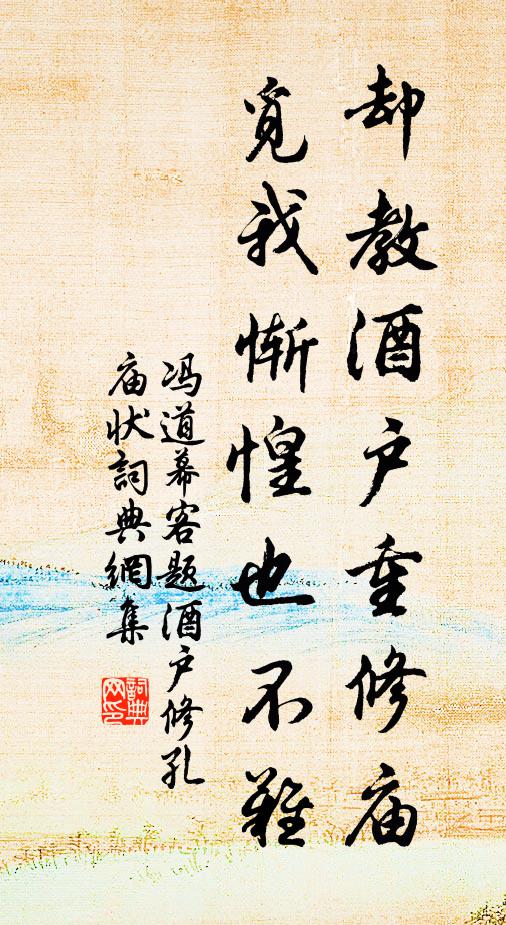 却教酒户重修庙
觅我惭惶也不难
冯道幕客题酒户修孔
庙状詞典網集
詞典
网印